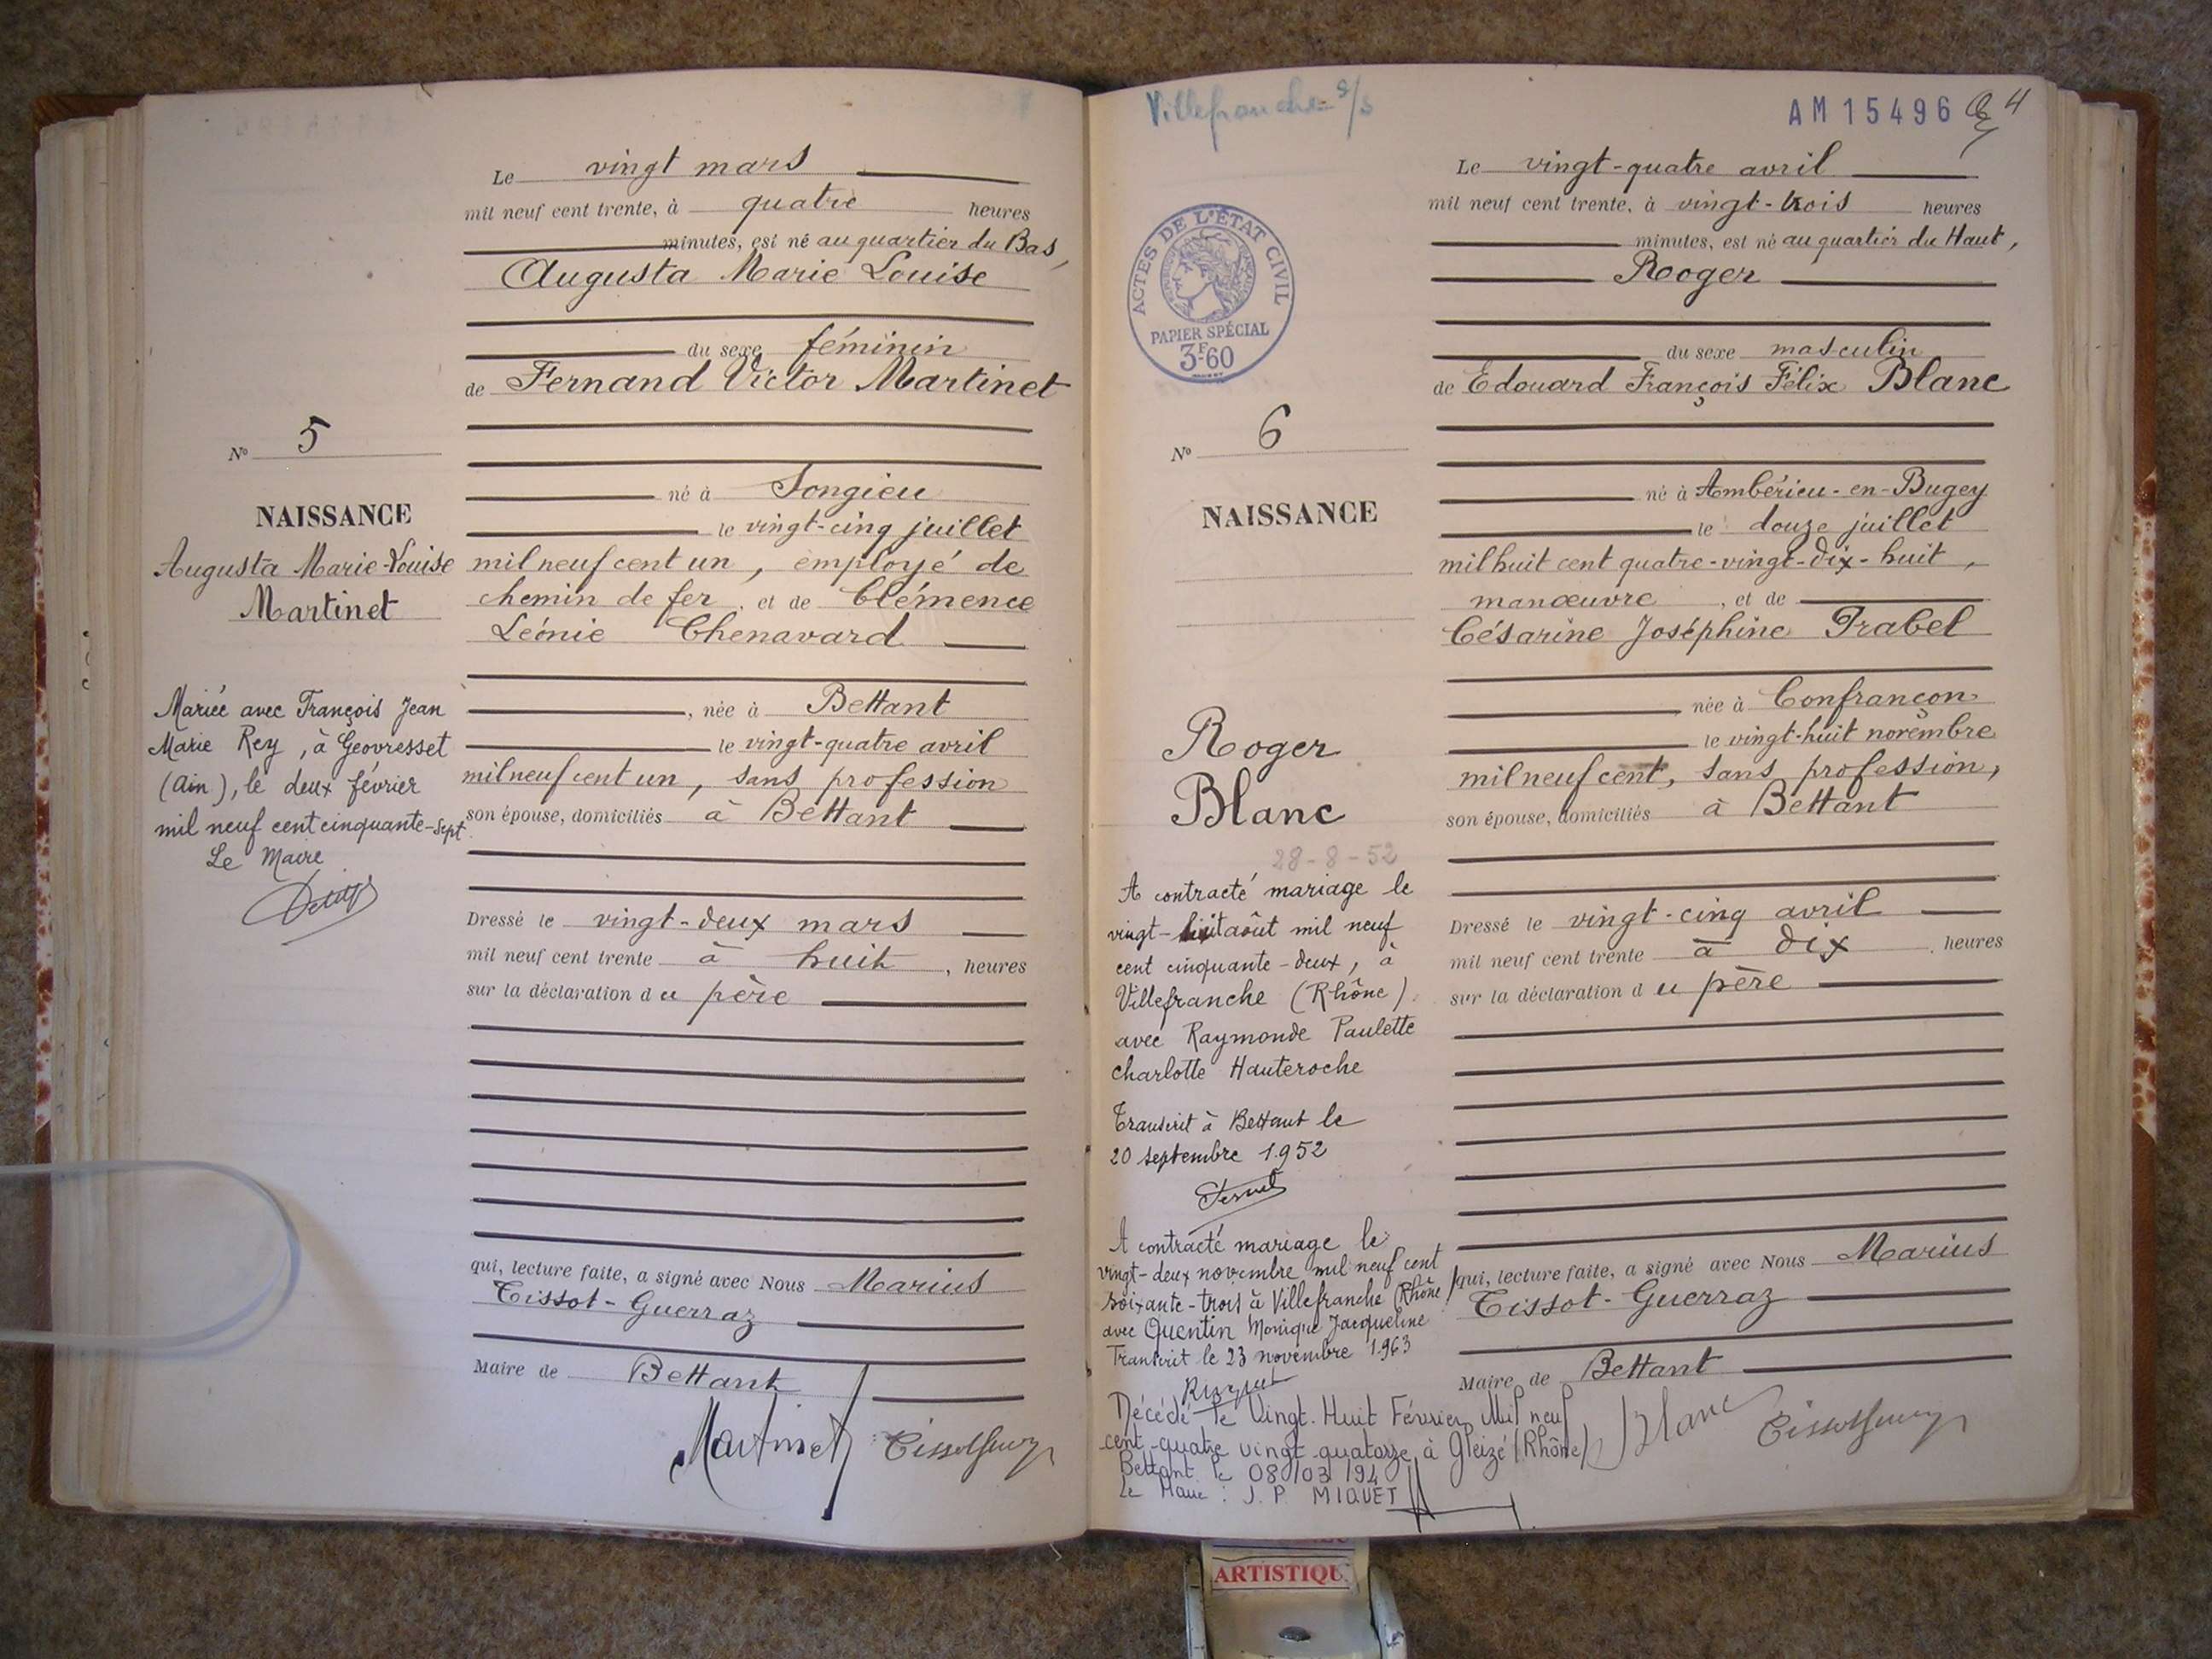 Le vingt mars
mil neuf cent trente, à quatre heures
minutes, est né au quartier du Bas,
Augusta Marie Louise
du sexe féminin
de Fernand Victor Martinet
né à Songieu
le vingt-cinq juillet
mil neuf cent un, employé de
chemin de fer, et de Clémence
Léonie Chenavard
, née à Bettant
le vingt-quatre avril
mil neuf cent un, sans profession
son épouse, domiciliés à Bettant
Dressé le vingt-deux mars
mil neuf cent trente à huit, heures
sur la déclaration du père
qui, lecture faite, a signé avec Nous Marius
Tissot-Guerraz
Maire de Bettant
Martinet
No 5
NAISSANCE
Augusta Marie-Louise
Martinet
Mariée avec François Jean
Marie Rey, à Geovresset
(Ain), le deux février
mil neuf cent cinquante-sept.
Le Maire
Villefranche s/s
AM 15496
4
ACTES DE L'ÉTAT CIVIL
PAPIER SPÉCIAL
3F60
No 6
NAISSANCE
Roger
Blanc
28-8-52
A contracté mariage le
vingt-huit août mil neuf
cent cinquante-deux, à
Villefranche (Rhône)
avec Raymonde Paulette
Charlotte Hauteroche
Transcrit à Bettant le
20 septembre 1952
A contracté mariage le
vingt-deux novembre mil neuf cent
soixante-trois à Villefranche (Rhône)
avec Quentin Monique Jacqueline
Transcrit le 23 novembre 1963
Décédé le Vingt.Huit Février Mil neuf
cent-quatre vingt quatorze à Gleizé (Rhône)
Bettant le 08/03/94
Le Maire : J. P. MIQUET
Le vingt-quatre avril
mil neuf cent trente, à vingt-trois heures
minutes, est né au quartier du Haut,
Roger
du sexe masculin
de Edouard François Félix Blanc
né à Ambérieu-en-Bugey
le douze juillet
mil huit cent quatre-vingt-dix-huit,
manœuvre, et de
Césarine Joséphine Prabel
née à Confrançon
le vingt-huit novembre
mil neuf cent, sans profession,
son épouse, domiciliés à Bettant
Dressé le vingt-cinq avril
mil neuf cent trente à dix heures
sur la déclaration du père
qui, lecture faite, a signé avec Nous Marius
Tissot-Guerraz
Maire de Bettant
Blanc
ARTISTIQU